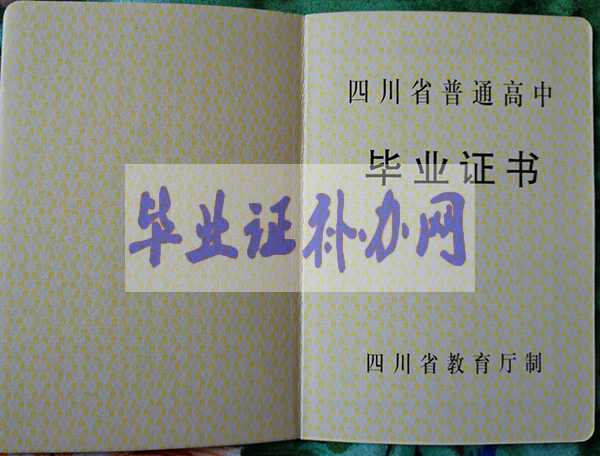 四川省普通高中
毕业证书
毕业证补办网
四川省教育厅制